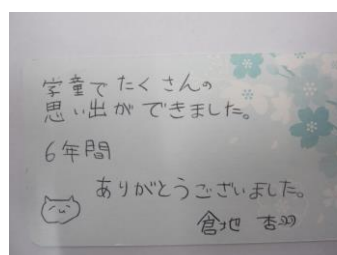 学童でたくさんの
思い出ができました。
6年間
ありがとうございました。
倉地 杏